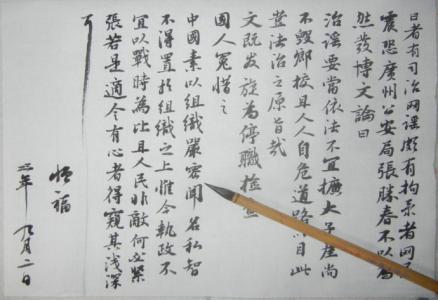 日者有司治网谣颇有拘系者网民
震恐廣州公安局張勝春不以為
然發博文論曰
治谣要當依法不宜擴大子產尚
不毁鄉校且人人自危道路以目此
豈法治之原旨哉
文既发旋為停職檢查
國人冤惜之
中國素以組織嚴密聞名私智
不得置於組織之上惟今執政不
宜以戰時為比且人民非敵何必緊
張若是適令有心者得窺其浅深
耳
悟福
三年
九月二日